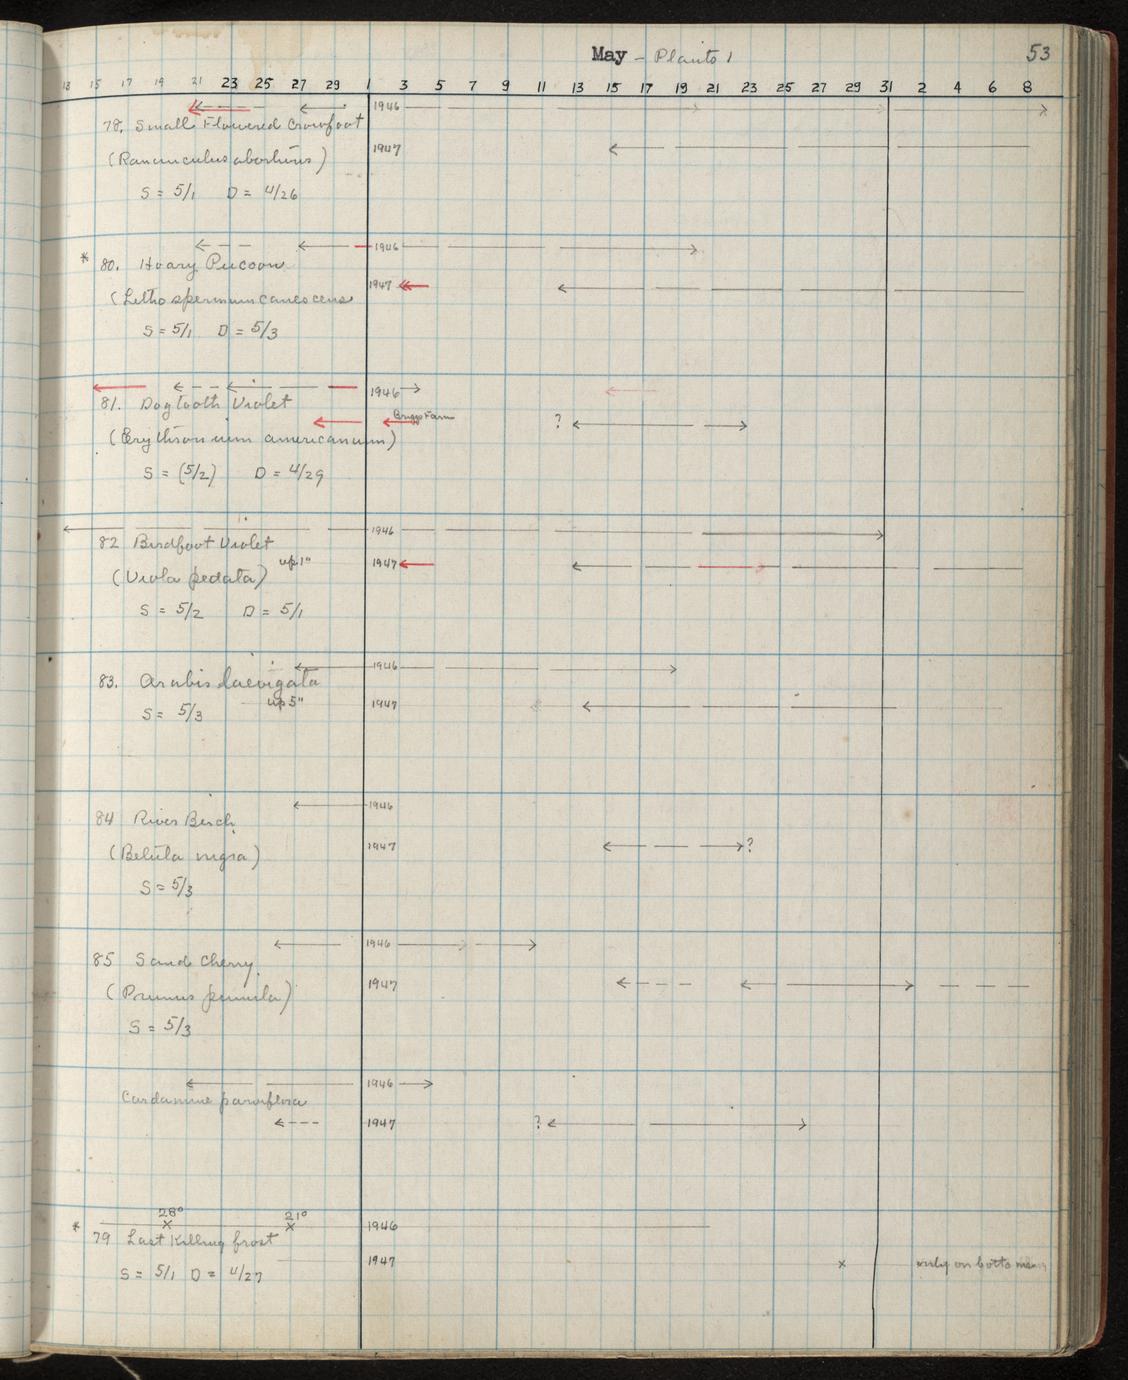 May - Plants 1
53
13 15 17 19 21 23 25 27 29 1 3 5 7 9 11 13 15 17 19 21 23 25 27 29 31 2 4 6 8
1946
78. Small Flowered Crowfoot
1947
(Ranunculus abortivus)
S = 5/1 D = 4/26
1946
* 80. Hoary Pucoon
1947
(Lithospermum canescens
S = 5/1 D = 5/3
1946
81. Dogtooth Violet
Briggs Farm
?
(Erythronium americanum)
S = (5/2) D = 4/29
1946
82 Birdfoot Violet
up 1" 1947
(Viola pedata)
S = 5/2 D = 5/1
1946
83. Arabis laevigata
up 5" 1947
S = 5/3
1946
84 River Birch
1947 ?
(Betula nigra)
S = 5/3
1946
85 Sand Cherry
1947
(Prunus pumila)
S = 5/3
1946
Cardamine parviflora
1947 ?
28° 21°
* x x 1946
79 Last Killing frost
1947 x only on bottoms
S = 5/1 D = 4/27